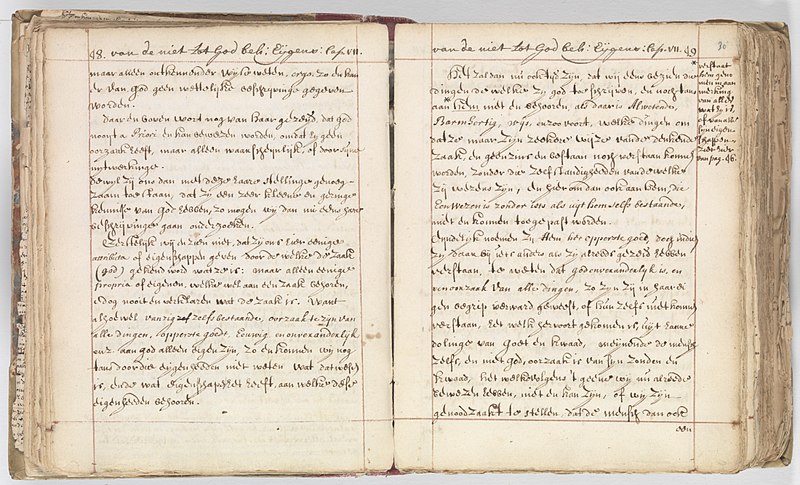 48. van de niet tot God beh: Eÿgens: Cap. VII.
maar alleen ontkennender wÿse weten, ergo. zo en kan
er van God geen wettelÿke beschrÿvinge gegeven
worden.
Daar en boven wort nog van haar gezeÿd, dat god
nooÿt a Priori en kan bewezen worden, omdat hÿ geen
oorzaak heeft, maar alleen waarschÿnelÿk, of door sÿne
uÿtwerkinge.
Dewÿl zÿ ons dan met deze haare stellinge genoeg-
zaam toestaan, dat zÿ een zeer kleene en geringe
kennisse van God hebben, zo mogen wÿ dan nu eens haare
beschrÿvinge gaan onderzoeken.
Eerstelÿk wÿ en zien niet, dat zÿ ons hier eenige
attributa of eigenschappen geven door de welke de zaak
(god) gekend word wat ze is: maar alleen eenige
propria of eigenen, welke wel aan een zaak behoren,
edog nooit en verklaren wat de zaak is. Want
alhoewel van zig zelfs bestaande, oorzaak te zÿn van
alle dingen, opperste goedt, Eeuwig, en onveranderlÿk
enz. aan god alleen eigen zÿn, zo en konnen wÿ nog
tans door die eÿgenheden niet weten wat dat wesen
is, ende wat eigenschappen het heeft, aan welke dese
eigenheden behooren.
van de niet tot God beh: Eÿgens: Cap. VII. 49
30
Het zal dan nu ook tÿd zÿn, dat wÿ eens bezien die
dingen de welke zÿ god toeschrÿven, en nochtans
aan hem* niet en behooren, als daar is Alwetende,
Barmhertig, wÿs, en zoo voort, welke dingen om
dat ze maar zÿn zeekere wÿze van de denkende
zaak, en geenzins en bestaan noch verstaan konnen
worden zonder die zelfstandigheeden van de welke
zÿ wezens zÿn, en hierom dan ook aan hem, die
Een wezen is zonder iets als uÿt hem selfs bestaande,
niet en konnen toegepast worden.
Eÿndelÿk noemen zÿ Hem het opperste goed, doch indien
zÿ daar bÿ iets anders als zÿ alreeds gezeid hebben
verstaan, te weten dat god onveranderlÿk is, en
een oorzaak van alle dingen, zo zÿn zÿ in haar ei
gen begrip verward geweest, of hien zelfs niet konnen
verstaan, het welk hervoort gekomen is, uÿt haare
dolinge van goet en kwaad, meÿnende de mensch
zelfs, en niet god, oorzaak is van sÿn zonden en
kwaad, het welk volgens 't geene wÿ nu alreede
bewezen hebben, niet en kan zÿn, of wÿ zÿn
genoodzaakt te stellen, dat de mensch dan ook
een
* verstaat
hem geno
men in aan
merking
van alles
wat hÿ is
of van alle
sÿn eigen-
schappen
ziet hier
van pag. 46.